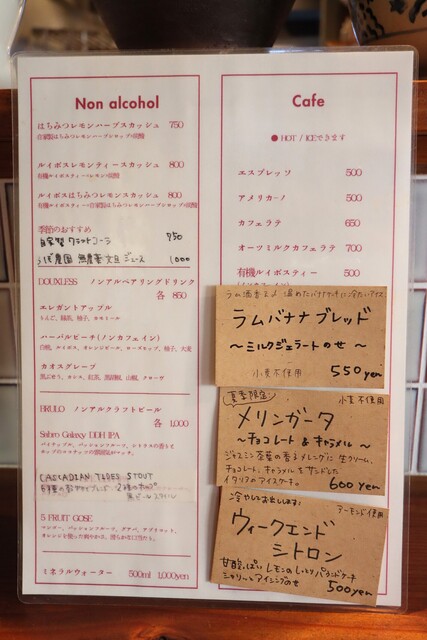 Non alcohol
はちみつレモンハーブスカッシュ 750
自家製はちみつレモンハーブシロップ+炭酸
ルイボスレモンティースカッシュ 800
有機ルイボスティー+レモン+炭酸
ルイボスはちみつレモンスカッシュ 800
有機ルイボスティー+自家製はちみつレモンハーブシロップ+炭酸
季節のおすすめ
自家製 クラフトコーラ 750
ジュース 1000
DOUXLESS ノンアルペアリングドリンク
各 850
エレガントアップル
りんご、緑茶、柚子、カモミール
ハーバルピーチ(ノンカフェイン)
白桃、ルイボス、オレンジピール、ローズヒップ、柚子、大麦
カオスグレープ
黒ぶどう、カシス、紅茶、黒胡椒、山椒、クローヴ
BRULO ノンアルクラフトビール
各 1,000
Sabro Galaxy DDH IPA
パイナップル、パッションフルーツ、シトラスの香りと
ホップのココナッツの雰囲気
CASCADIAN TIDES STOUT
5 FRUIT GOSE
マンゴー、パッションフルーツ、グアバ、アプリコット、
オレンジを使った爽やかは、滑らかな口当たり。
ミネラルウォーター 500ml 1,000yen
Cafe
●HOT / ICEできます
エスプレッソ 500
アメリカーノ 500
カフェラテ 650
オーツミルクカフェラテ 700
有機ルイボスティー 500
(ノンカフェイン)
ラム酒香る 温めたバナナケーキに冷たいアイス
ラムバナナブレッド
～ミルクジェラートのせ～
小麦不使用 550yen
夏季限定 小麦不使用
メリンガータ
～チョコレート & キャラメル～
ジャスミン茶葉の香るメレンゲに生クリーム、
チョコレート、キャラメルをサンドした
イタリアのアイスケーキ。 600yen
冷やしてお出しします アーモンド使用
ウィークエンド
シトロン
甘酸っぱいレモンのしっとりパウンドケーキ
シャリッとアイシングのせ 500yen